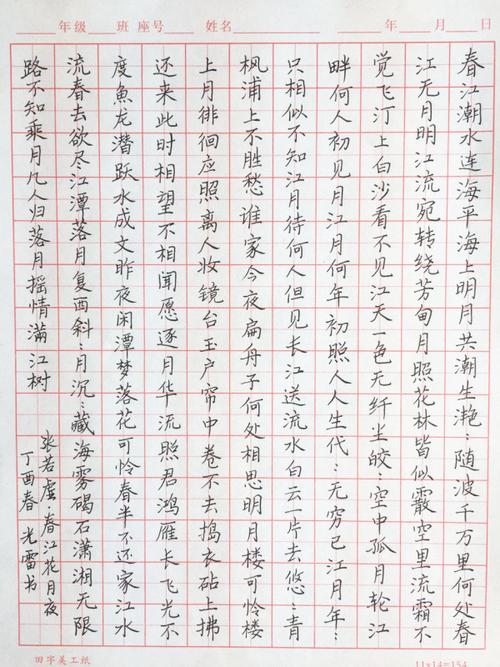 ____年级____班 座号____ 姓名____ ____年____月____日
春江潮水连海平海上明月共潮生滟:随波千万里何处春
江无月明江流宛转绕芳甸月照花林皆似霰空里流霜不
觉飞汀上白沙看不见江天一色无纤尘皎:空中孤月轮江
畔何人初见月江月何年初照人人生代:无穷已江月年:
只相似不知江月待何人但见长江送流水白云一片去悠:青
枫浦上不胜愁谁家今夜扁舟子何处相思明月楼可怜楼
上月徘徊应照离人妆镜台玉户帘中卷不去捣衣砧上拂
还来此时相望不相闻愿逐月华流照君鸿雁长飞光不
度魚龙潜跃水成文昨夜闲潭梦落花可怜春半不还家江水
流春去欲尽江潭落月复西斜:月沉:藏海雾碣石潇湘无限
路不知乘月几人归落月摇情满江树
张若虚·春江花月夜
丁酉春 光雷书
田字美工纸
11×14=154